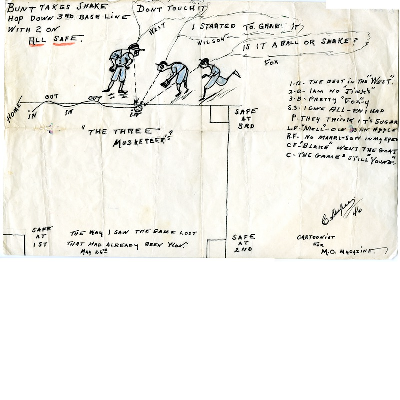 BUNT TAKES SNAKE
HOP DOWN 3RD BASE LINE
WITH 2 ON
ALL SAFE.
DON'T TOUCH IT
WEST
I STARTED TO GRAB IT
WILSON
IS IT A BALL OR SNAKE?
FOX
HOME
OUT
OUT
IN
IN
IN
"THE THREE
MUSKETEERS"
SAFE
AT
3RD
1-B - THE BEST IN THE "WEST".
2-B - I AM NO
3-B - PRETTY "FOXY"
S.S - I GIVE ALL - EN I HAD
P - THEY THINK IT'S SUGAR
R.F. NO IN MY EYES
C.F "BLAKE" WENT THE GOAT
C - THE GAME'S STILL YOUNG"
SAFE
AT
1ST
THE WAY I SAW THE GAME LOST
THAT HAD ALREADY BEEN WON.
MAY 25TH
SAFE
AT
2ND
46
CARTOONIST
FOR
M.C. MAGAZINE